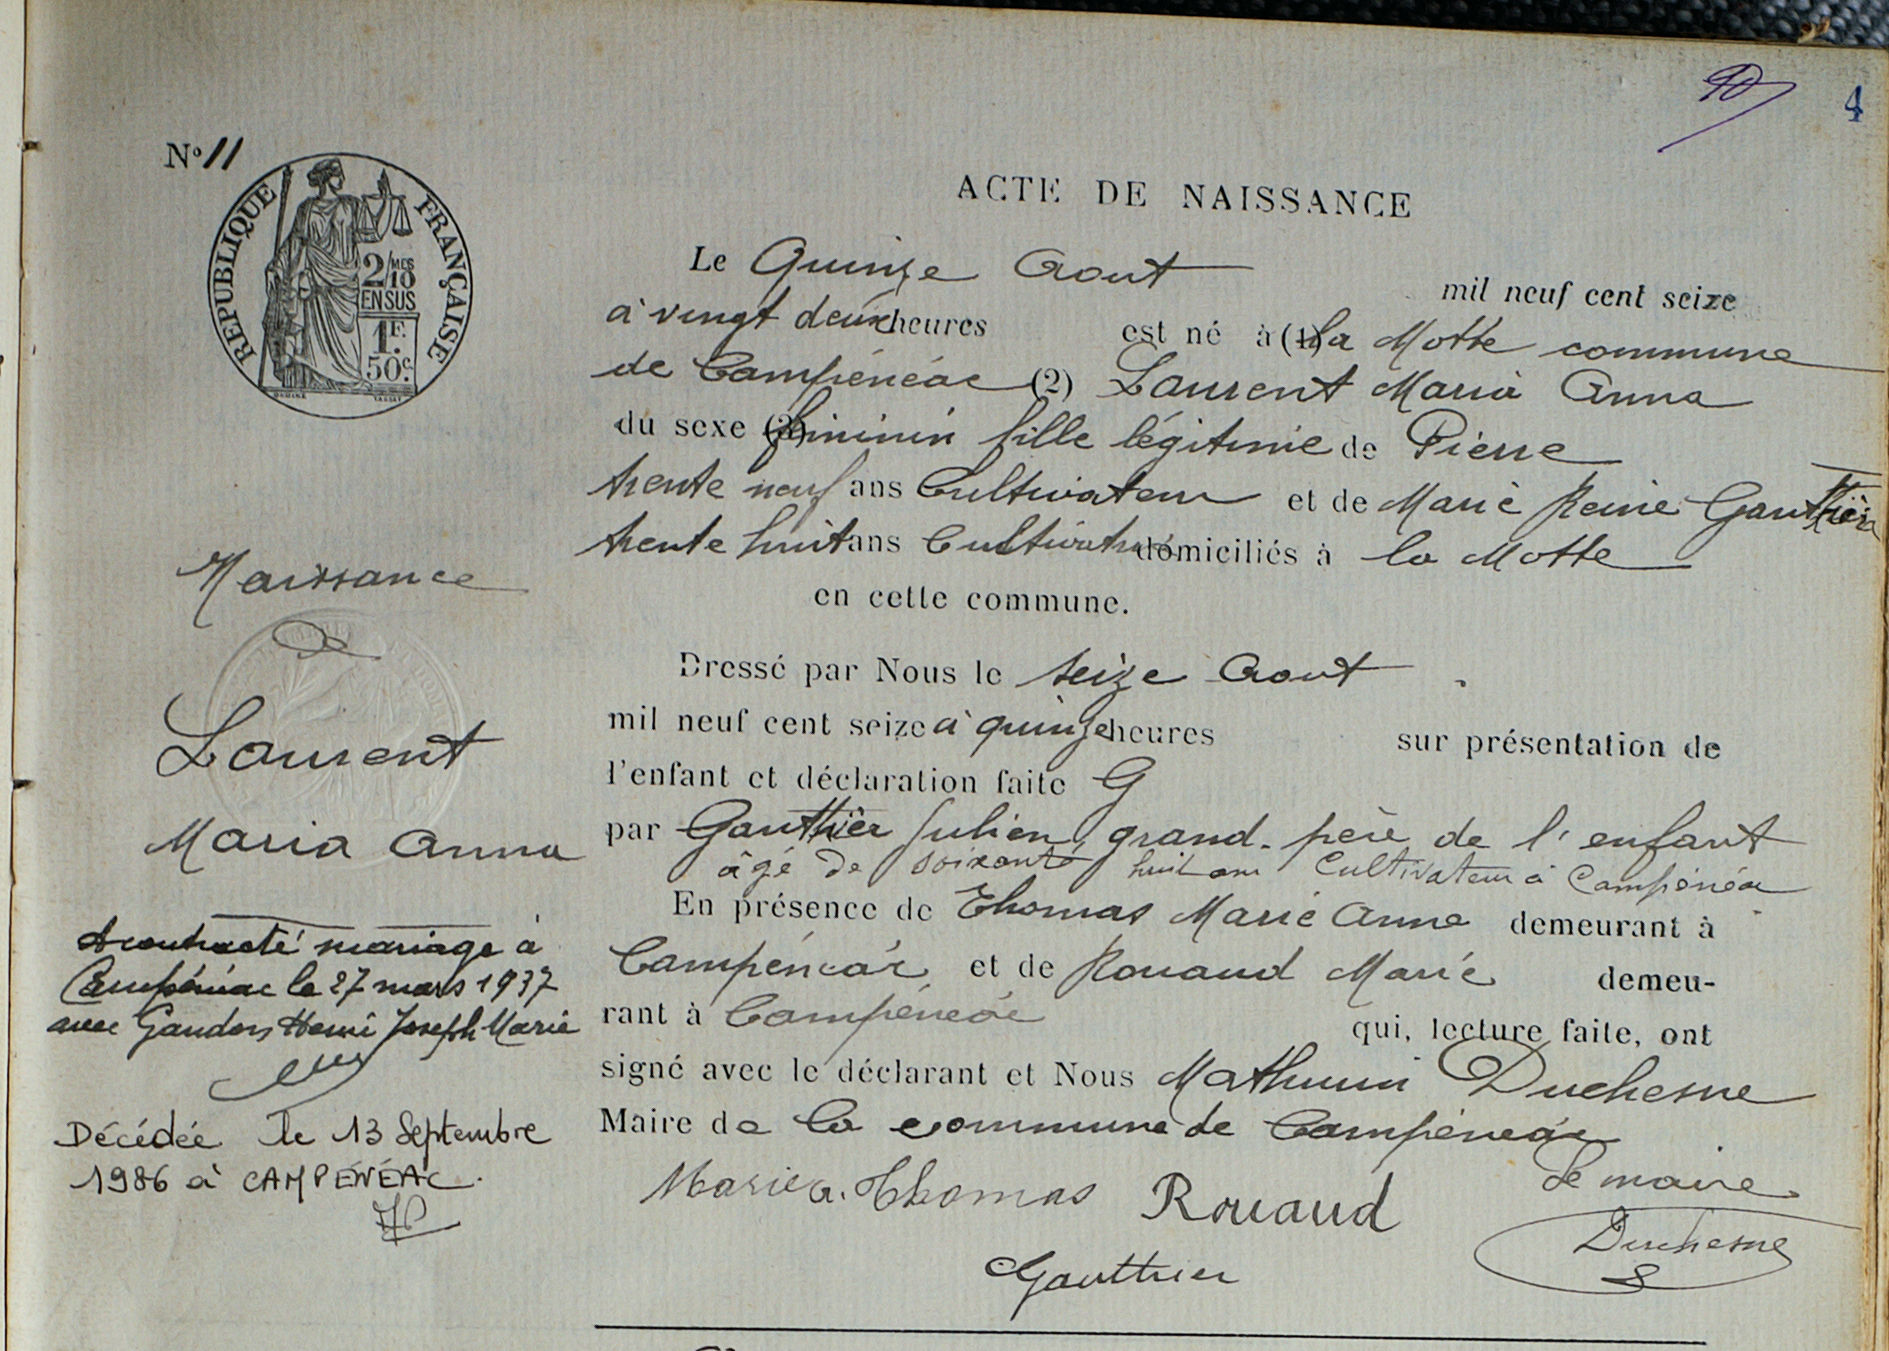 4
N° 11
RÉPUBLIQUE FRANÇAISE
2/10 MES
EN SUS
1F.
50c.
ACTE DE NAISSANCE
Le Quinze Aout mil neuf cent seize
à vingt deux heures est né à (1) la Motte commune
de Campénéac (2) Laurent Maria Anna
du sexe (3) féminin fille légitime de Pierre
trente neuf ans Cultivateur et de Marie Reine Gauthier
trente huit ans Cultivatrice domiciliés à la Motte
en cette commune.
Dressé par Nous le seize Aout
mil neuf cent seize à quinze heures sur présentation de
l'enfant et déclaration faite G
par Gauthier Julien, grand-père de l'enfant
âgé de soixante huit ans Cultivateur à Campénéac
En présence de Thomas Marie Anne demeurant à
Campénéac et de Rouaud Marie demeu-
rant à Campénéac qui, lecture faite, ont
signé avec le déclarant et Nous Mathurin Duchesne
Maire de la commune de Campénéac
Marie a. Thomas Rouaud Le maire
Duchesne
Gauthier
Naissance
de
Laurent
Maria Anna
A contracté mariage à
Campénéac le 27 mars 1937
avec Gandon Henri Joseph Marie
Décédée le 13 Septembre
1986 à CAMPÉNÉAC.